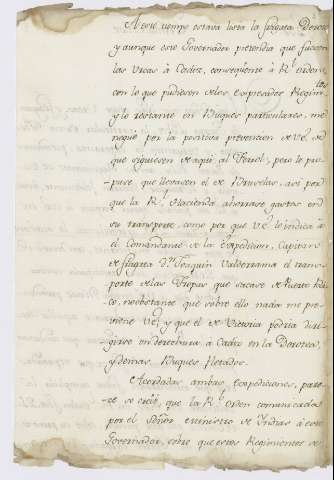 A este tiempo estava lista la fragata Dorotea
y aunque este Governador pretendia que fuesen
las Urcas à Cadiz, consequente à Rl. orden
con lo que pudiesen de los expresados Regimtos
y lo restante en Buques particulares, me
negué por la positiva prevencion de V.E. de
que siguiesen de aqui al Ferrol, pero le pro-
puse que llevasen el de Bruselas, asi por
que la Rl. Hacienda ahorrase gastos en
su transporte, como por que V.E. le indica à
el Comandante de la Expedicion, Capitan
de fragata Dn. Joaquin Valderrama el trans-
porte de las Tropas que sacase de Puerto Ri-
co, no obstante que sobre ello nada me pre-
viene V.E. y que el de Victoria podria diri-
girse en derechura à Cadiz en la Dorotea,
y demas Buques fletados.
Acordadas ambas Expediciones, pare-
ce se creió, que la Rl. orden comunicada
por el Señor Ministro de Indias à este
Governador, sobre que estos Regimientos se